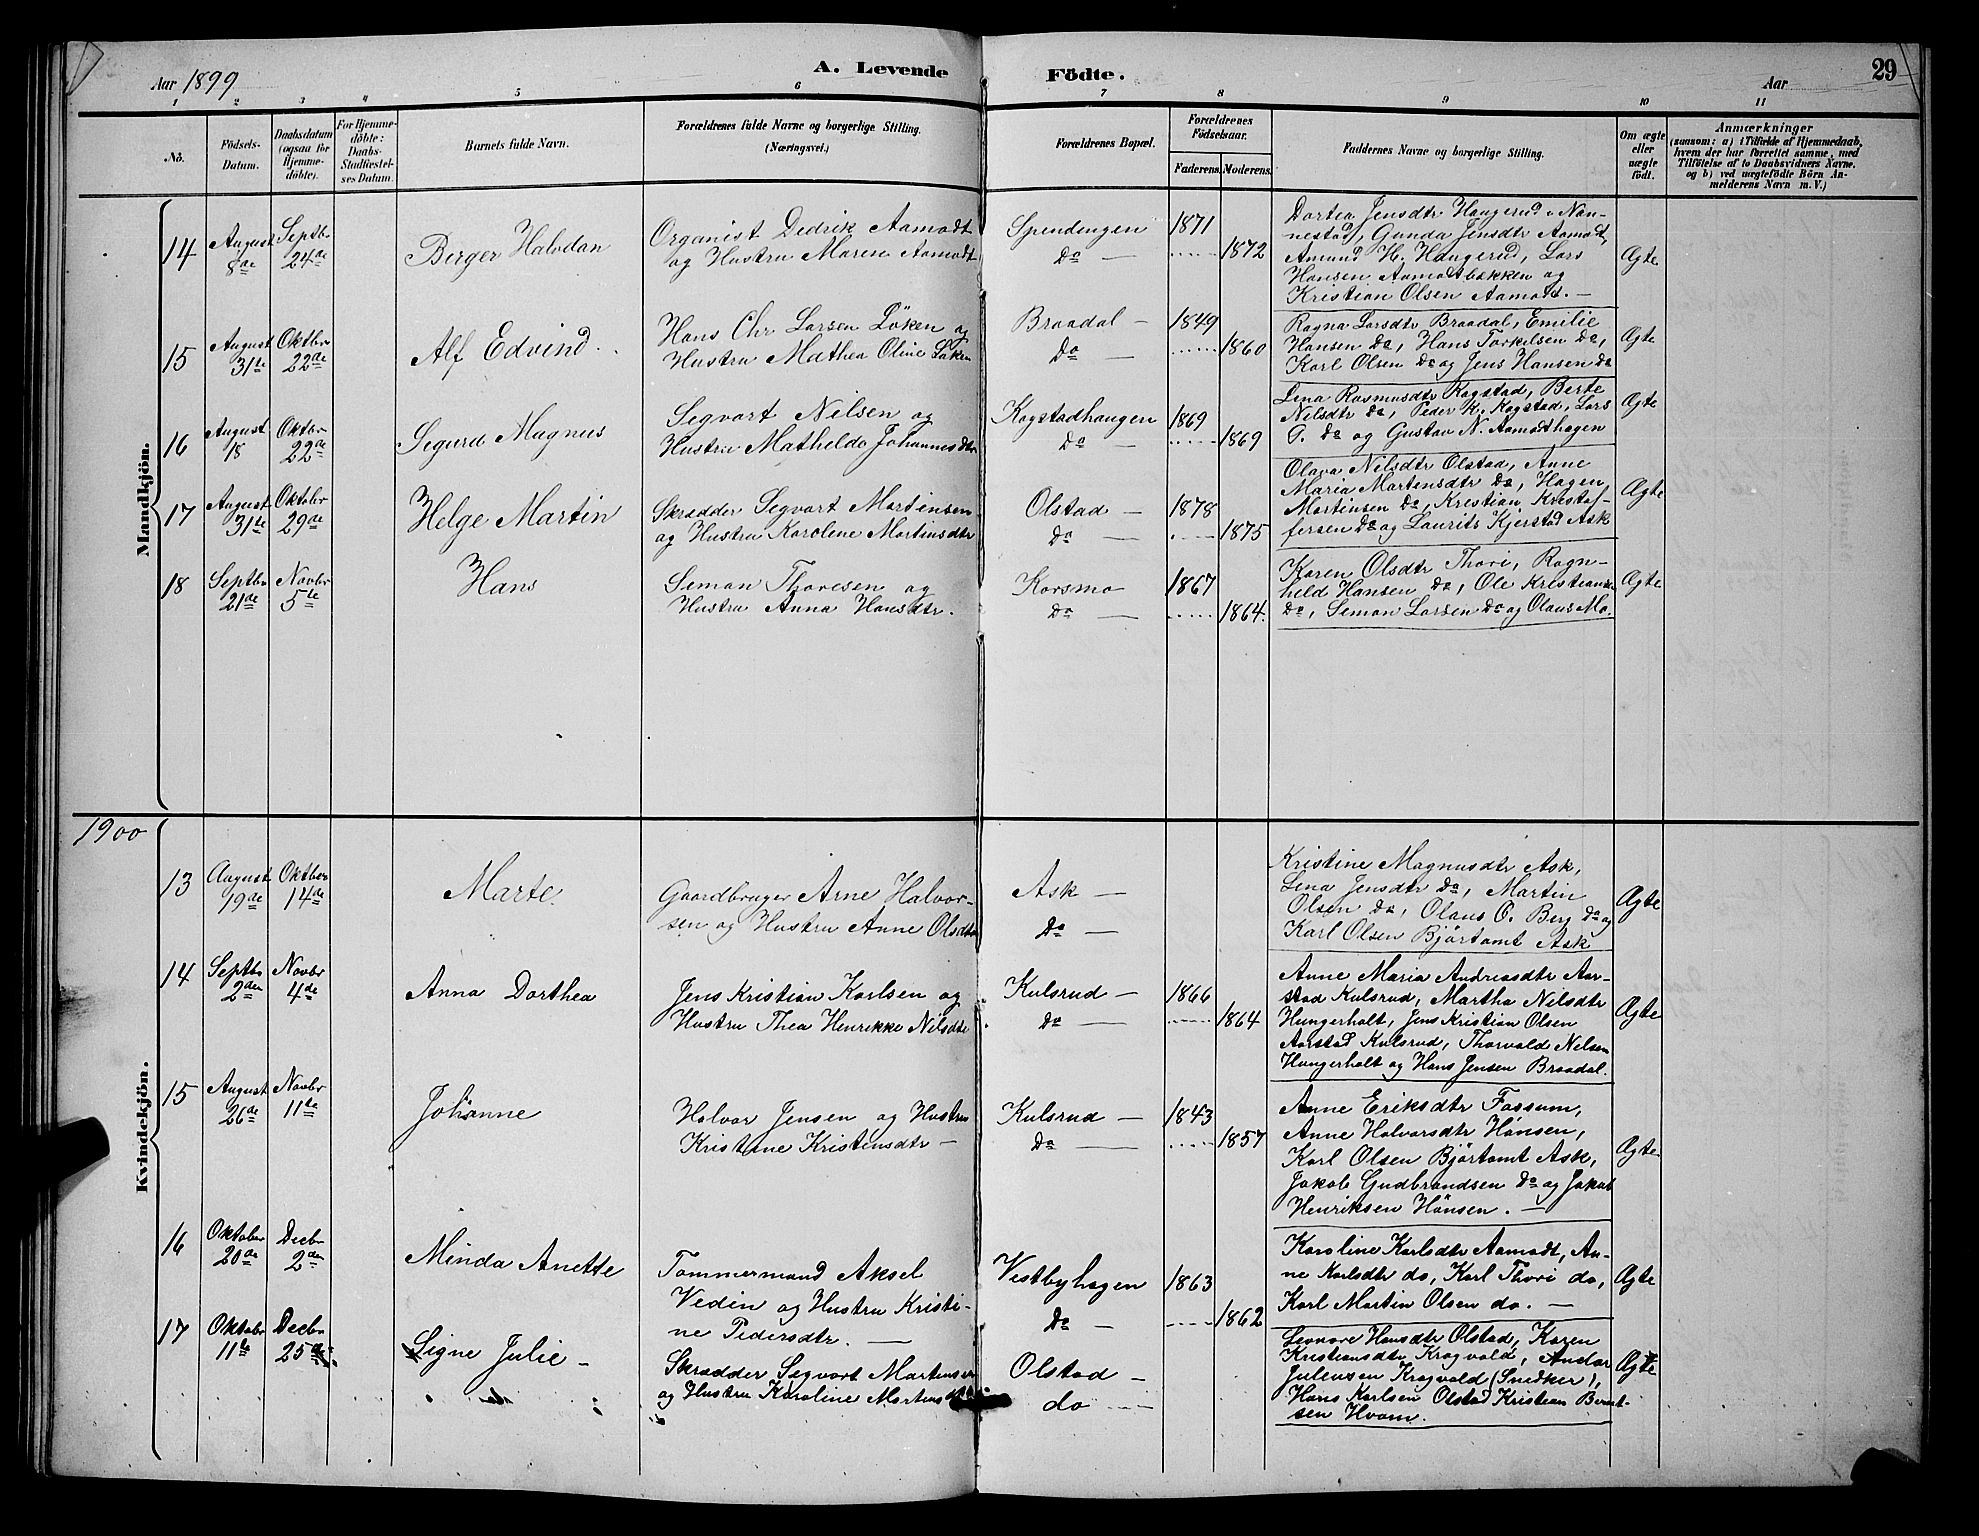 Aar 1899
A. Levende Födte.
Aar
29
1 2 3 4 5 6 7 8 9 10 11
No.
Födsels-
Datum.
Daabsdatum
(ogsaa for
Hjemme-
döbte).
For Hjemme-
döbte:
Daabs-
Stadfæstel-
ses Datum.
Barnets fulde Navn.
Forældrenes fulde Navne og borgerlige Stilling.
(Næringsvei.)
Forældrenes Bopæl.
Forældrenes
Födselsaar.
Faderens. Moderens.
Faddernes Navne og borgerlige Stilling.
Om ægte
eller
uægte
födt.
Anmærkninger
(saasom: a) i Tilfælde af Hjemmedaab,
hvem der har forrettet samme, med
Tilföielse af to Daabsvidners Navne.
og b) ved uægtefödte Börn An-
melderens Navn m. V.)
Mandkjön.
14
August
8de
Septbr
24de
Berger Halvdan
Organist Dedrik Aamodt
og Hustru Maren Aamodt
Spendingen
Do —
1871
1872
Dortea Jensdtr Haugerud v Nan-
nestad, Gunda Jensdtr Aamodt,
Amund H. Haugerud, Lars
Hansen Aamodtbakken og
Kristian Olsen Aamodt. —
Ægte
15
August
31te
Oktbr
22de
Alf Edvind
Hans Chr Larsen Löken og
Hustru Mathea Oline Løken
Braadal —
Do —
1849
1860
Ragna Larsdtr Braadal, Emilie
Hansen Do, Hans Torkelsen Do,
Karl Olsen Do og Jens Hansen Do
Ægte
16
August
18
Oktbr
22de
Segurd Magnus
Segvart Nilsen og
Hustru Mathelda Johannesdtr
Kogstadhaugen
Do —
1869
1869
Lina Rasmusdtr Kogstad, Berte
Nelsdtr Do, Peder K. Kogstad, Lars
P. Do og Gustav N. Aamodthagen
Ægte
17
August
31te
Oktober
29de
Helge Martin
Skrædder Segvart Martinsen
og Hustru Karolene Martinsdtr
Olstad —
Do —
1878
1875
Olava Nilsdtr Olstad, Anne
Maria Martensdtr Do, Hagen
Martinsen Do, Kristian Kristof-
fersen Do og Laurits Kjerstad Ask
Ægte
18
Septbr
21de
Novbr
5te
Hans
Seman Thoresen og
Hustru Anna Hansdtr.
Korsmo
Do —
1867
1864.
Karen Olsdtr Thori, Ragn-
held Hansen Do, Ole Kristiansen
Do, Seman Larsen Do og Olaus Mo.
Ægte
1900
Kvindekjön.
13
August
19de
Oktber
14de
Marte.
Gaardbruger Arne Halvor-
sen og Hustru Anne Olsdtr
Ask —
Do —
Kristine Magnusdtr Ask,
Lena Jensdtr Do, Martin
Olsen Do, Olaus O. Berg Do og
Karl Olsen Bjärtomt Ask
Ægte
14
Septbr
2den
Novbr
4de
Anna Dorthea
Jens Kristian Karlsen og
Hustru Thea Henrikke Nilsdtr
Kulsrud —
Do —
1866
1864
Anne Maria Andreasdtr Aar-
stad Kulsrud, Martha Nilsdtr
Hungerholt, Jens Kristian Olsen
Aarstad Kulsrud, Thorvald Nelsen
Hungerholt og Hans Jensen Braadal.
Ægte
15
August
26de
Novbr
11te
Johanne
Halvor Jensen og Hustru
Kristine Kristensdtr —
Kulsrud —
Do —
1843
1857
Anne Eriksdtr Fossum,
Anne Halvorsdtr Hönsen,
Karl Olsen Bjärtomt Ask,
Jakob Gudbrandsen Do og Jakob
Henriksen Hönsen. —
Ægte
16
Oktober
20de
Decbr
2den
Minda Anette
Tømmermand Aksel
Vedin og Hustru Kristi-
ne Pedersdtr. —
Vestbyhagen
Do —
1863
1862
Karoline Karlsdtr Aamodt, An-
ne Karlsdtr do, Karl Thori do,
Karl Martin Olsen do. —
Ægte
17
Oktobr
11te
Decbr
25de
Signe Julie —
Skrædder Segvart Martensen
og Hustru Karoline Martensdtr
Olstad —
do —
Leonore Hansdtr Olstad, Karen
Kristiansdtr Kragvald, Andor
Julensen Kragvald (Snedker),
Hans Karlsen Olstad Kristian Bernt-
sen Hvam.
Ægte